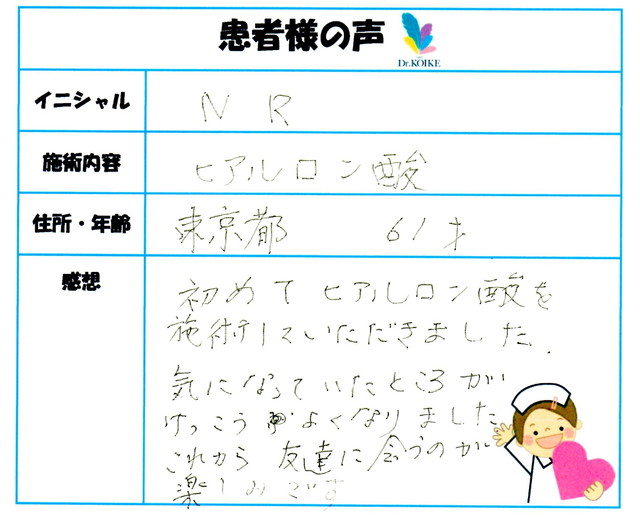 患者様の声
Dr.KOIKE
イニシャル
N R
施術内容
ヒアルロン酸
住所・年齢
東京都 61才
感想
初めてヒアルロン酸を
施術していただきました.
気になっていたところが
けっこうよくなりました
これから友達に会うのが
楽しみです